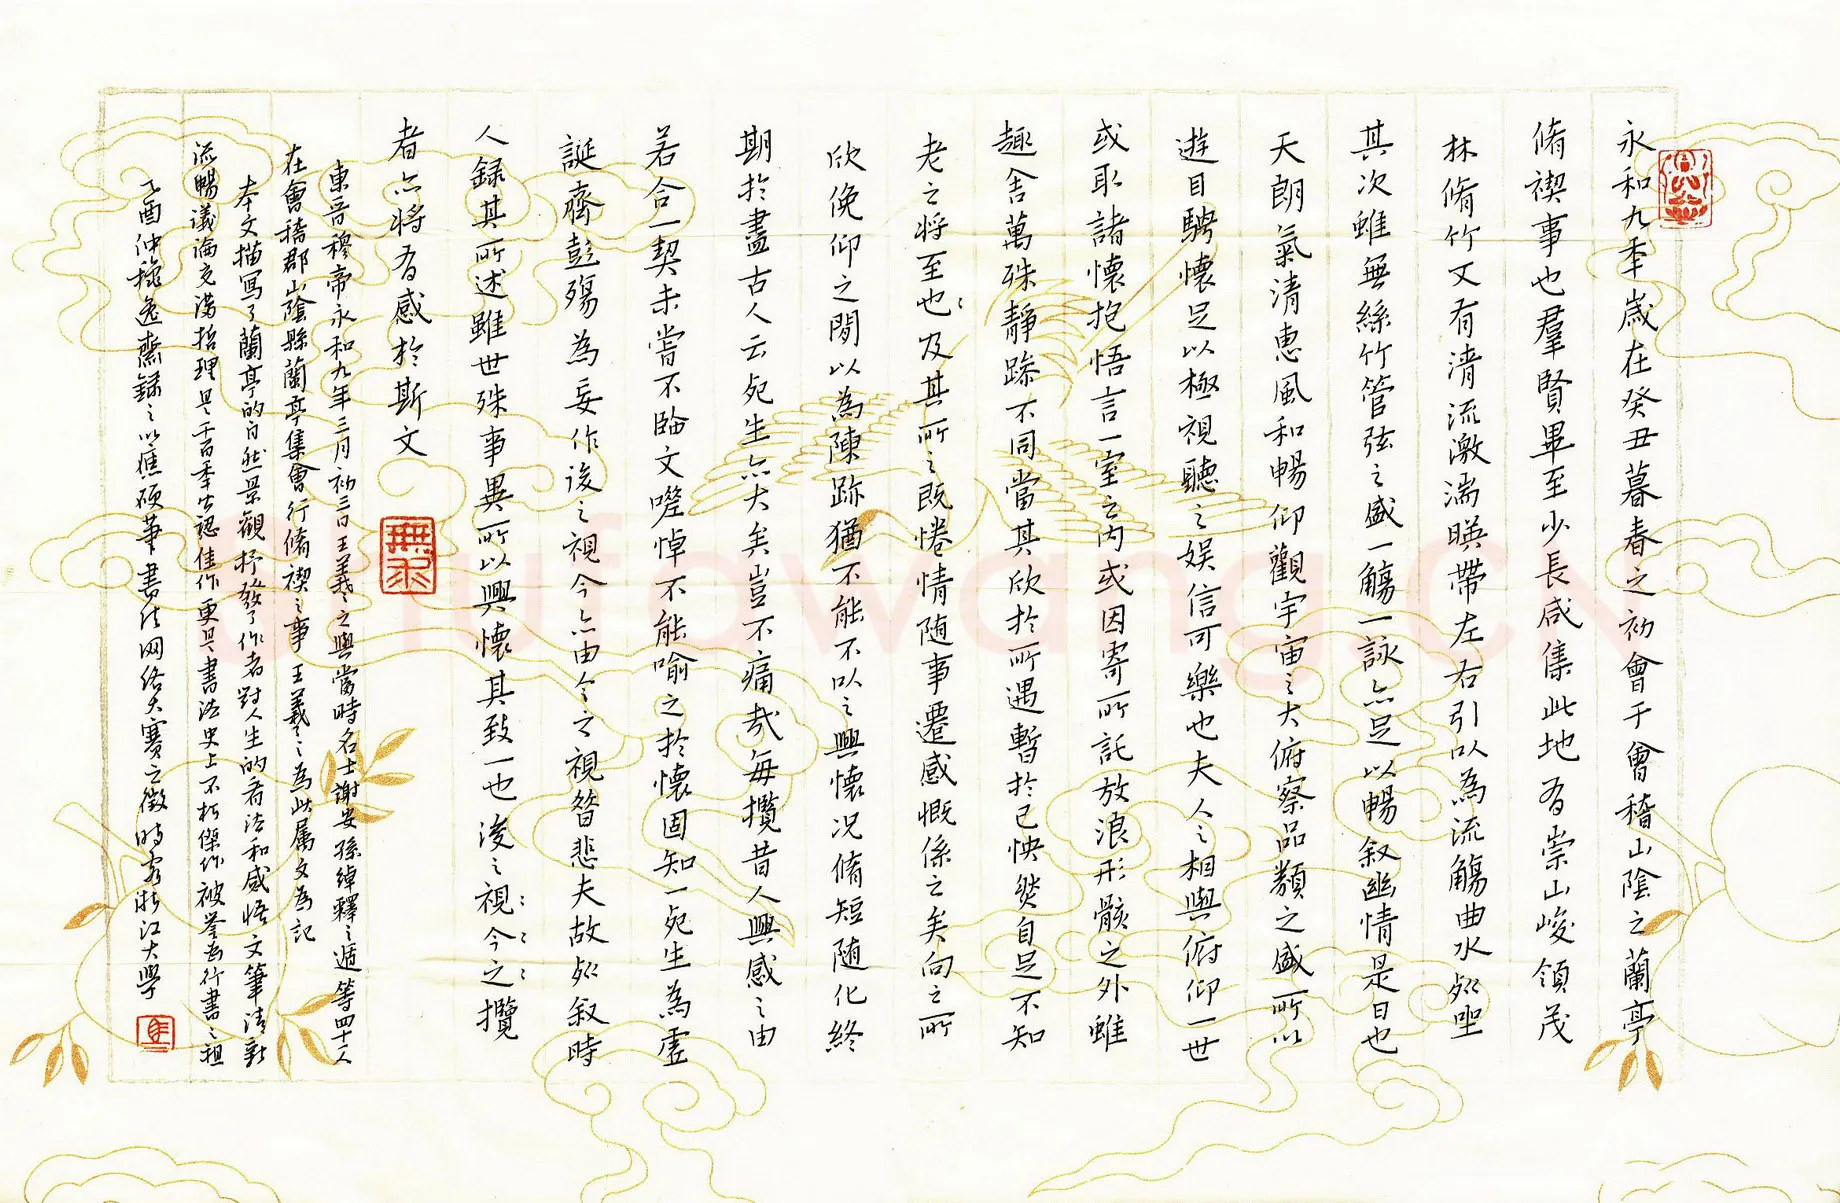 永和九年歲在癸丑暮春之初會于會稽山陰之蘭亭
脩禊事也羣賢畢至少長咸集此地有崇山峻領茂
林脩竹又有清流激湍暎帶左右引以為流觴曲水列坐
其次雖無絲竹管弦之盛一觴一詠亦足以暢叙幽情是日也
天朗氣清惠風和暢仰觀宇宙之大俯察品類之盛所以
遊目騁懷足以極視聽之娱信可樂也夫人之相與俯仰一世
或取諸懷抱悟言一室之內或因寄所託放浪形骸之外雖
趣舍萬殊靜躁不同當其欣於所遇暫於己怏然自足不知
老之將至也及其所之既惓情随事遷感慨係之矣向之所
欣俛仰之閒以為陳跡猶不能不以之興懷况脩短随化終
期於盡古人云死生亦大矣豈不痛哉每攬昔人興感之由
若合一契未嘗不臨文嗟悼不能喻之於懷固知一死生為虛
誕齊彭殤為妄作後之視今亦由今之視昔悲夫故列叙時
人録其所述雖世殊事異所以興懷其致一也後之視今之攬
者亦將有感於斯文
東晉穆帝永和九年三月初三日王羲之與當時名士謝安孫綽釋之遁等四十二人
在會稽郡山陰縣蘭亭集會行脩禊之事王羲之為此属文為記
本文描寫了蘭亭的自然景觀抒發了作者對人生的看法和感悟文筆清新
流暢議論充满哲理是千百年公認佳作更是書法史上不朽傑作被譽為行書之祖
乙酉仲穐逸齋録之以應硕華書法网络大赛之徵時客浙江大學
shufawang.CN